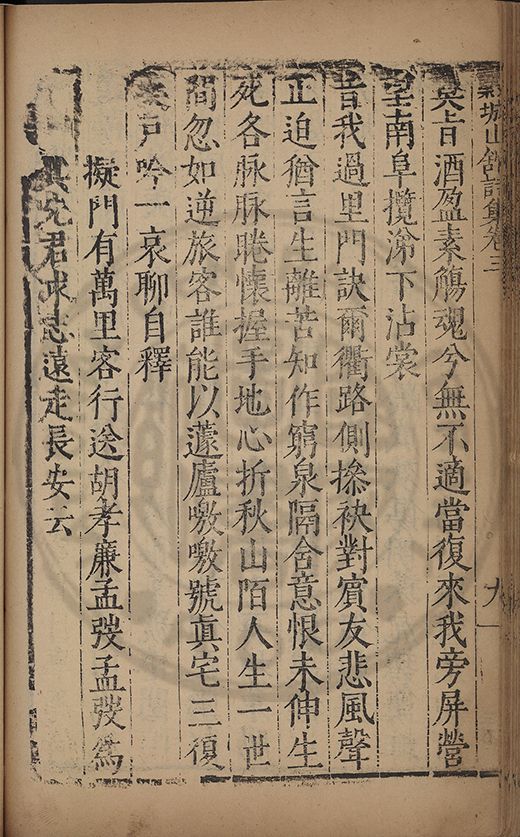 城山館詩集卷三 九
奠旨酒盈素觴魂兮無不適當復來我旁屏營
望南阜攬涕下沾裳
昔我過里門訣爾衢路側摻袂對賓友悲風聲
正迫猶言生離苦知作窮泉隔含意恨未伸生
死各脉脉睠懷握手地心折秋山陌人生一世
間忽如逆旅客誰能以蘧廬嗷嗷號眞宅三復
戶吟一哀聊自釋
擬門有萬里客行送胡孝廉孟弢孟弢爲
其先君求志遠走長安云